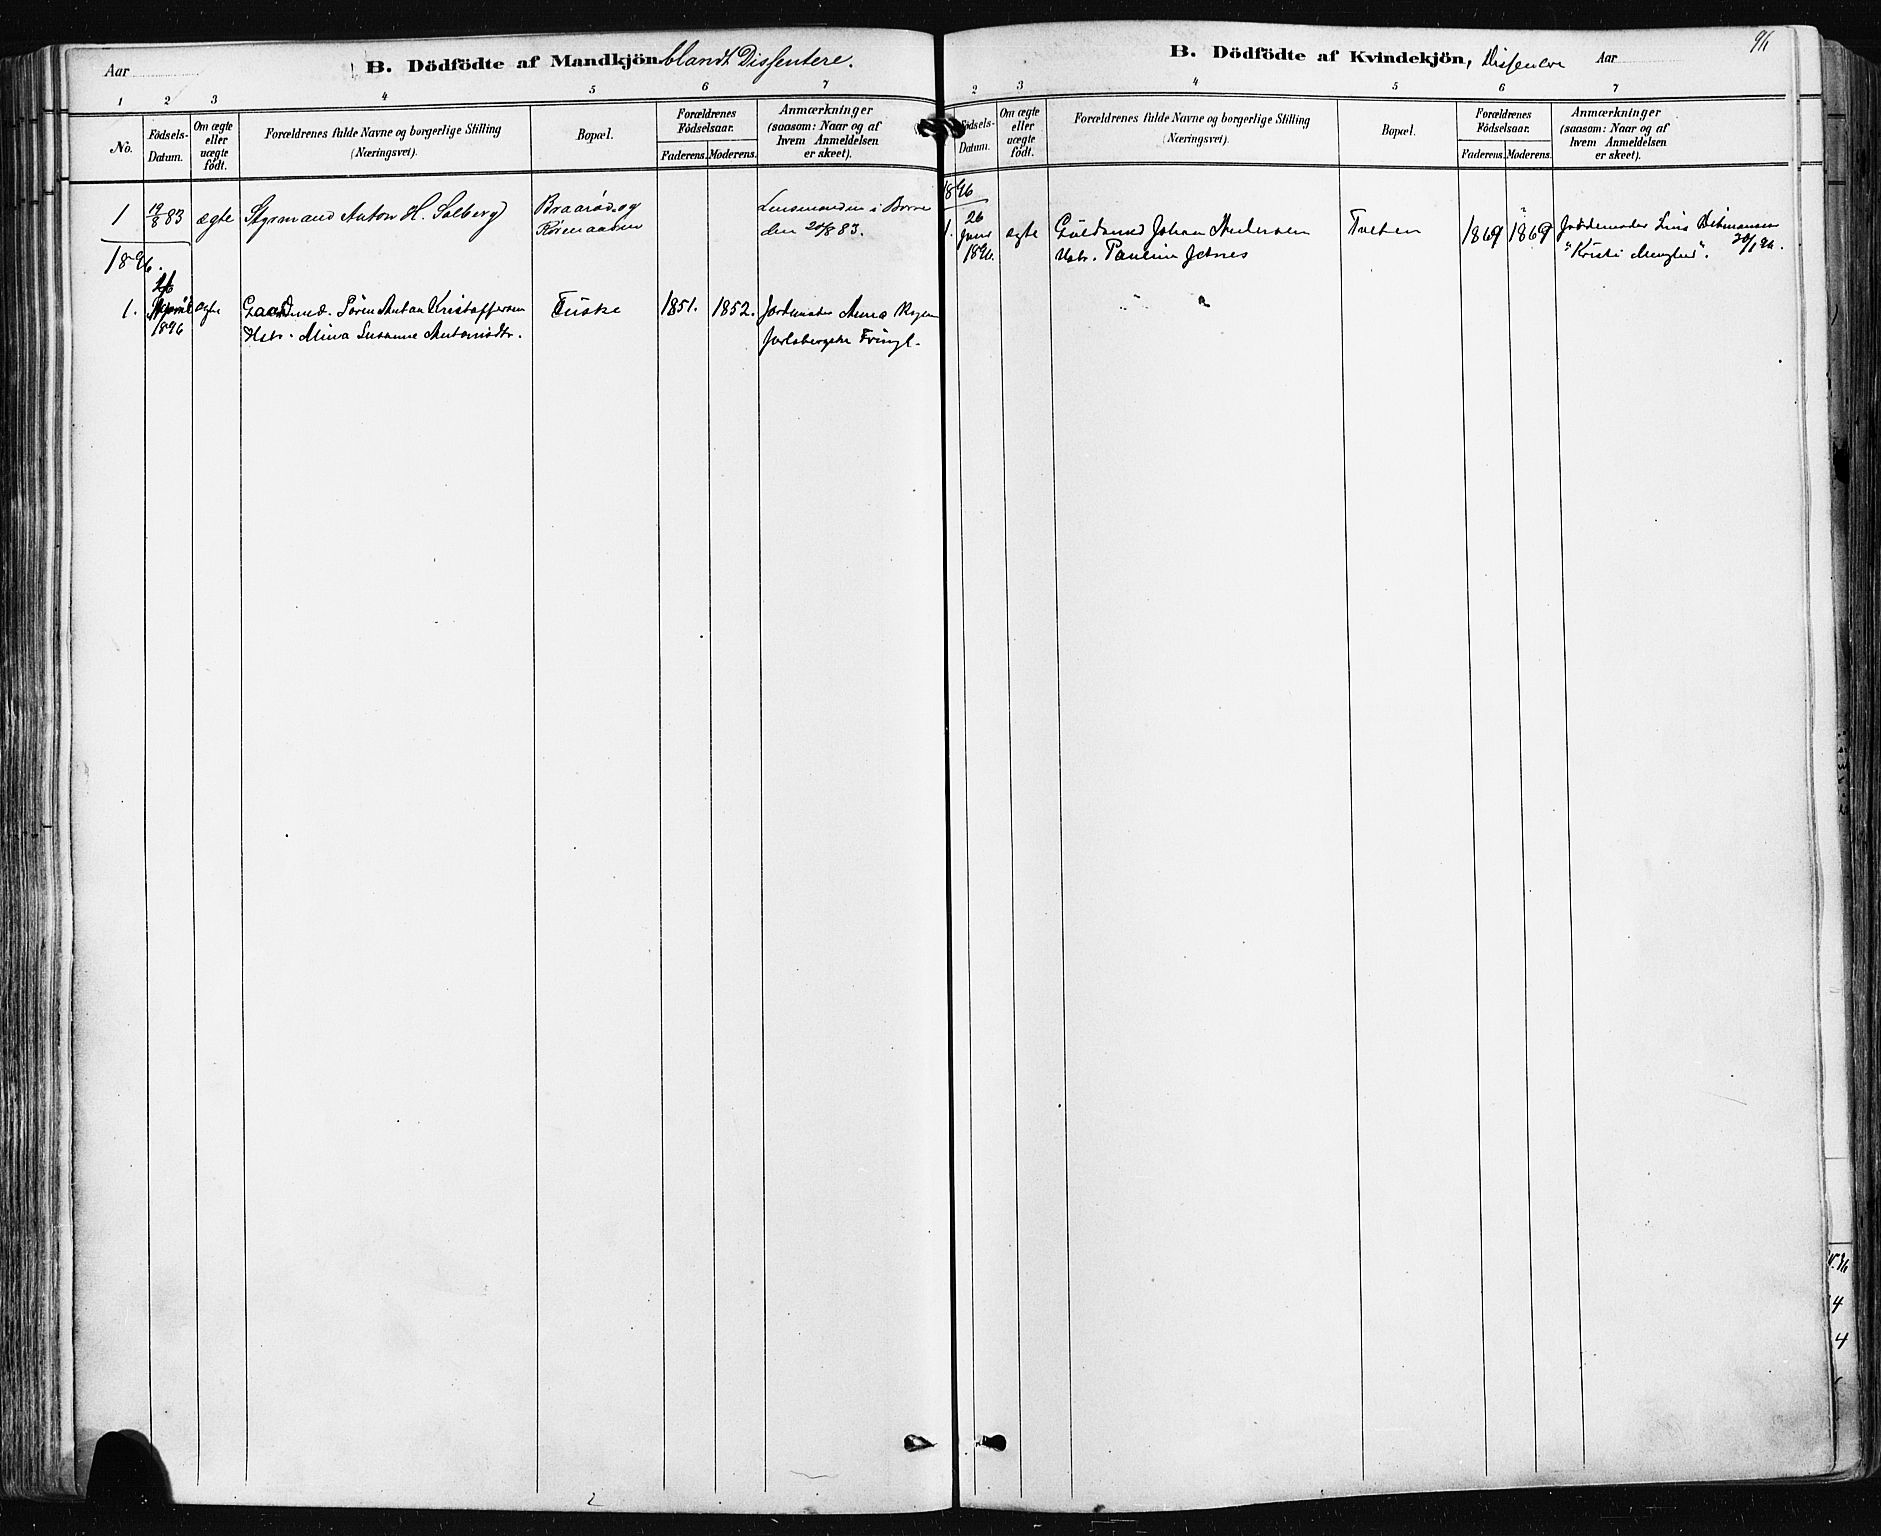 Aar
B. Dödfödte af Mandkjön blandt Dissentere.
1 2 3 4 5 6 7
No.
Födsels-
Datum.
Om ægte
eller
uægte
födt.
Forældrenes fulde Navne og borgerlige Stilling
(Næringsvei).
Bopæl.
Forældrenes
Födselsaar.
Faderens. Moderens.
Anmærkninger
(saasom: Naar og af
hvem Anmeldelsen
er skeet).
1 19/8 83 ægte Styrmand Anton H. Solberg
Braarød og
Lensmanden i Borre
den 20/8 83.
1896.
1. 1896 ægte
Gaardmd. Søren Anton Kristoffersen
Hstr. Mina Susanne Antonisdtr.
1851. 1852.
Jordemoder Anna
Jarlsbergske
B. Dödfödte af Kvindekjön, Dissentere
Aar
96
2 3 4 5 6 7
Födsels-
Datum.
Om ægte
eller
uægte
födt.
Forældrenes fulde Navne og borgerlige Stilling
(Næringsvei).
Bopæl.
Forældrenes
Födselsaar.
Faderens. Moderens.
Anmærkninger
(saasom: Naar og af
hvem Anmeldelsen
er skeet).
1896
1. 26
1896. ægte
Guldsmed Johan Andersen
Hstr. Pauline
1869 1869
Jordemoder